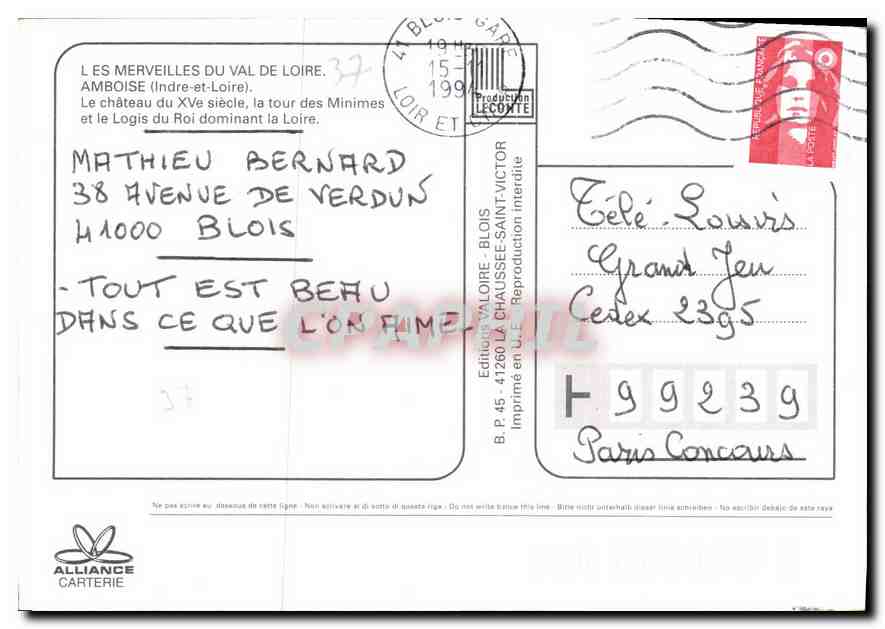 L ES MERVEILLES DU VAL DE LOIRE.
AMBOISE (Indre-et-Loire).
Le château du XVe siècle, la tour des Minimes
et le Logis du Roi dominant la Loire.
37
41 BLOIS GARE
19 H
15-11
1994
LOIR ET CHER
Production
LECONTE
RÉPUBLIQUE FRANÇAISE
LA POSTE
MATHIEU BERNARD
38 AVENUE DE VERDUN
41000 BLOIS
- TOUT EST BEAU
DANS CE QUE L'ON AIME -
37
CPAPHIL
Editions VALOIRE - BLOIS
B. P. 45 - 41260 LA CHAUSSEE-SAINT-VICTOR
Imprimé en U.E. - Reproduction interdite
Télé-Loisirs
Grand Jeu
Cedex 2395
99239
Paris Concours
Ne pas écrire au dessous de cette ligne - Non scrivere al di sotto di questa riga - Do not write below this line - Bitte nicht unterhalb dieser linie schreiben - No escribir debajo de esta raya
ALLIANCE
CARTERIE